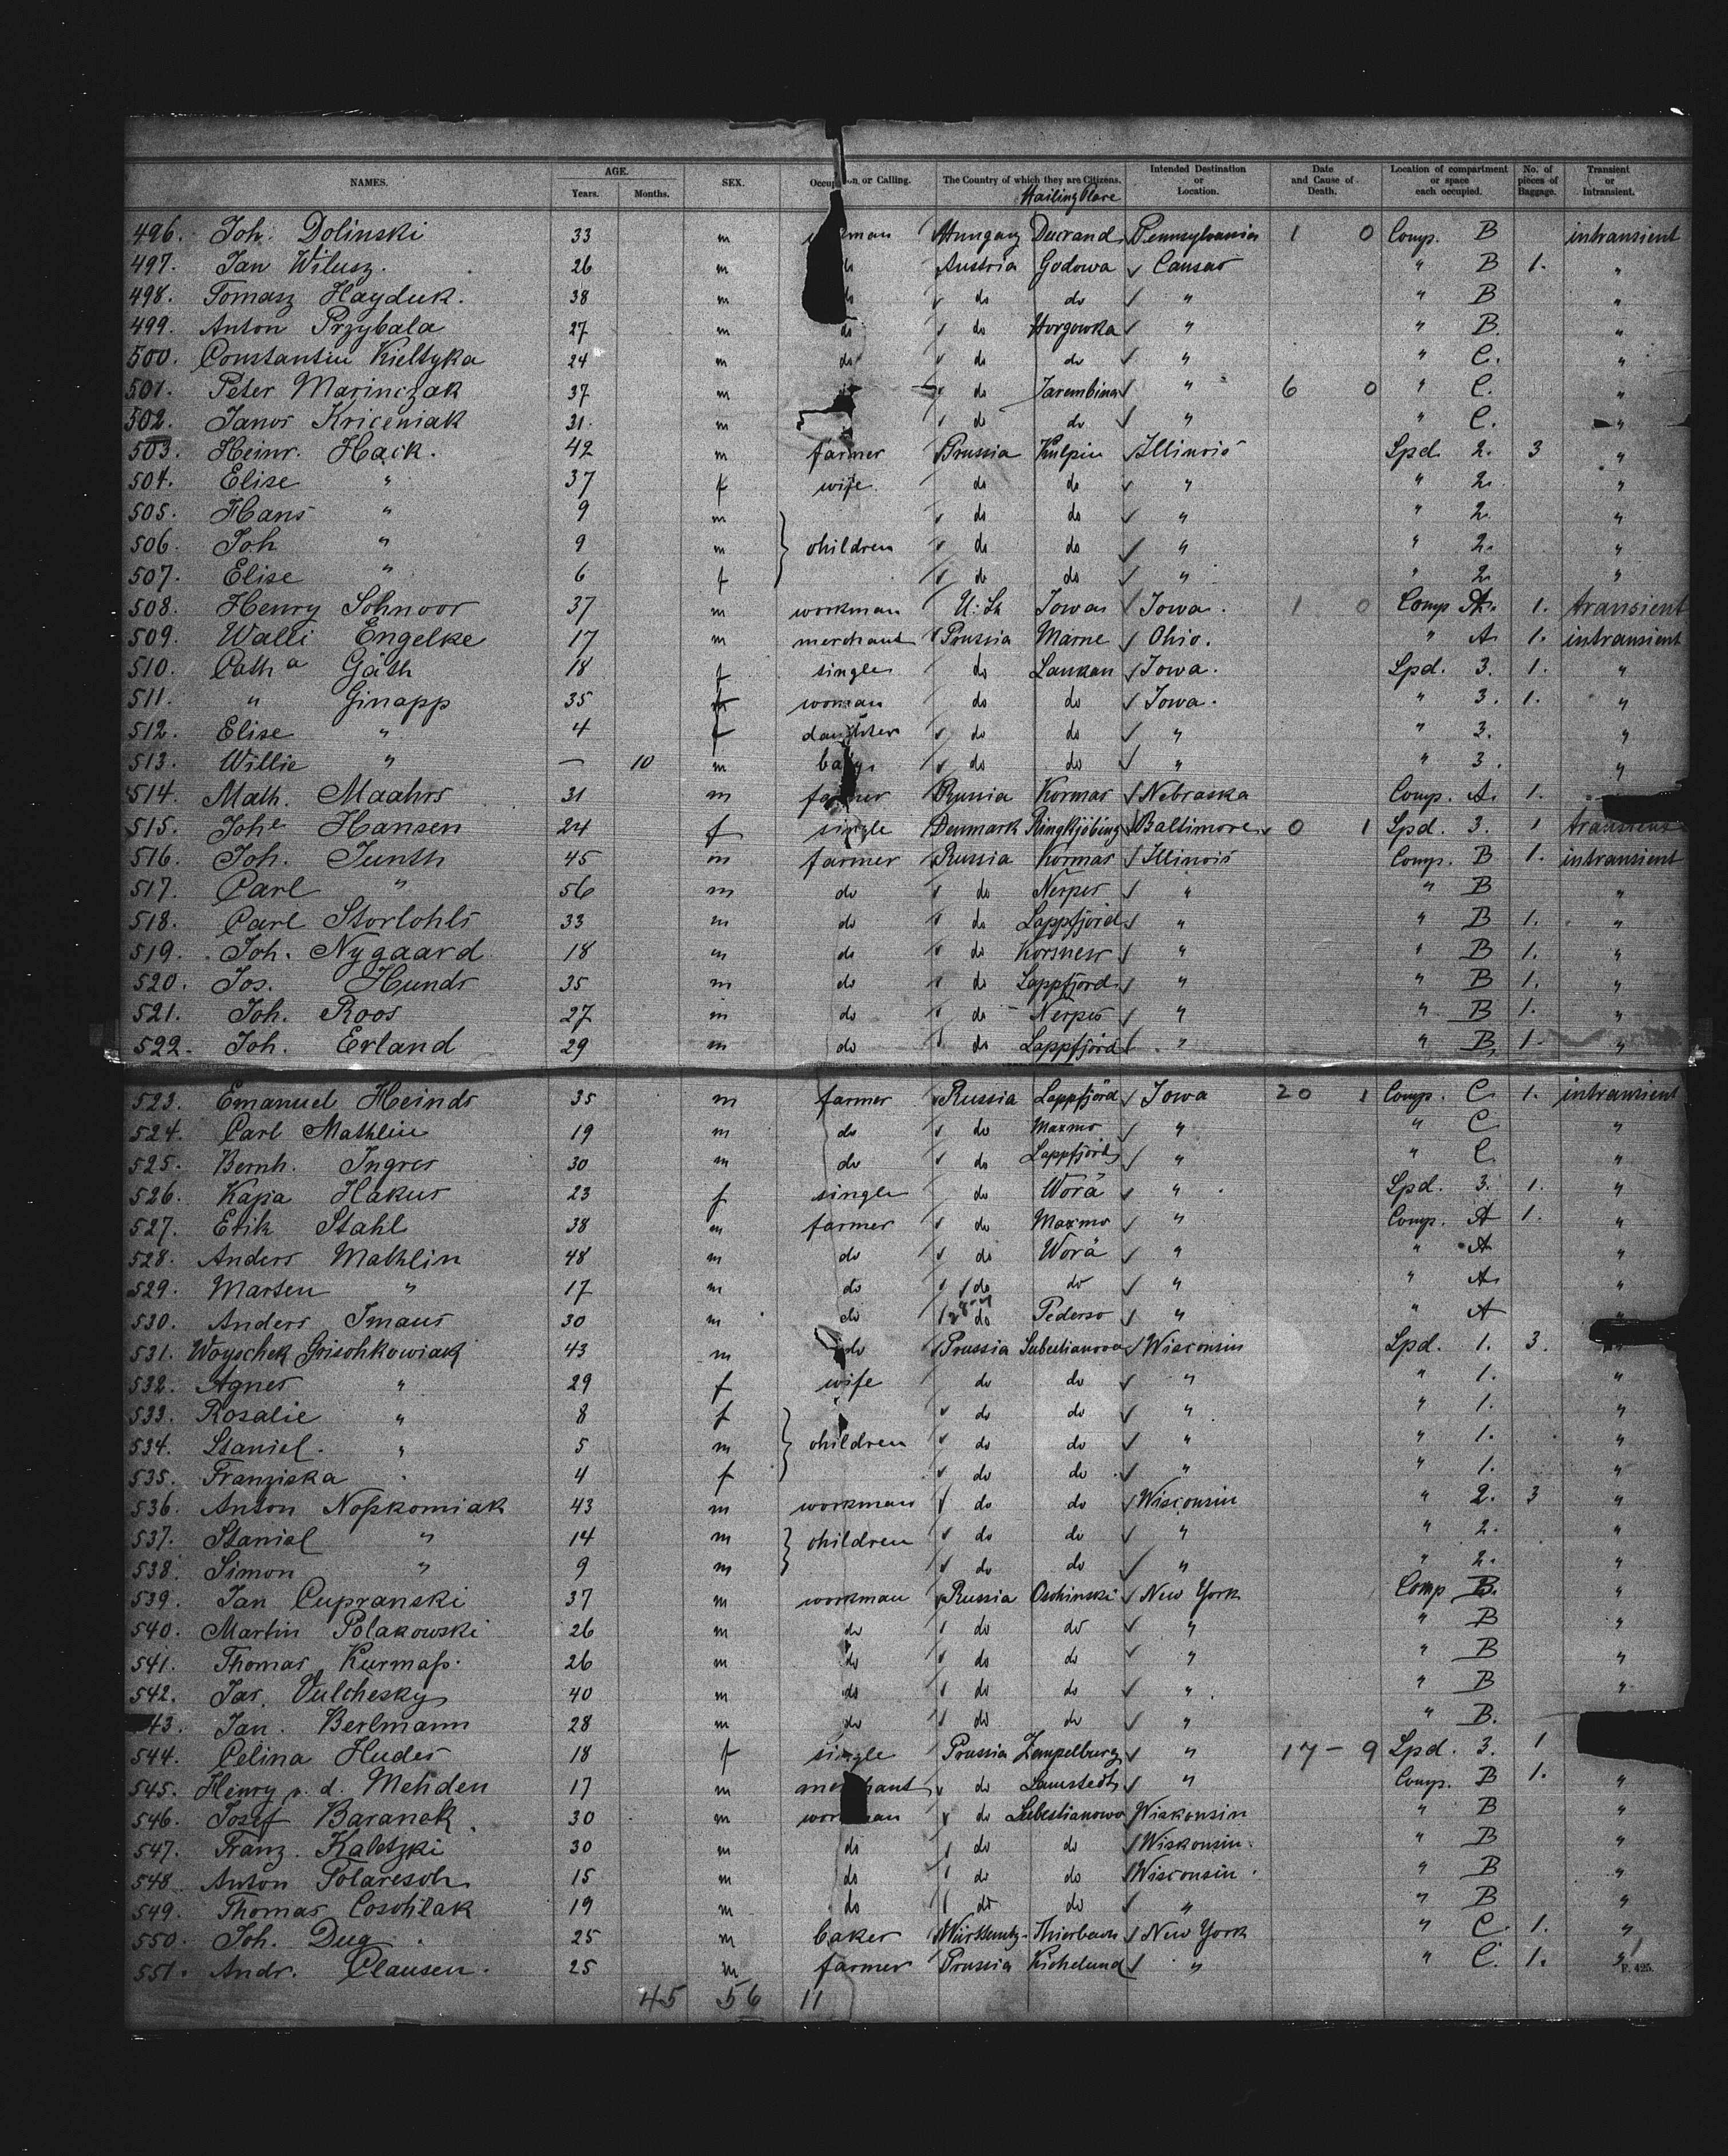 NAMES. AGE. Years. Months. SEX. Occupation or Calling. The Country of which they are Citizens. Hailing Place Intended Destination or Location. Date and Cause of Death. Location of compartment or space each occupied. No. of pieces of Baggage. Transient or Intransient.
496. Joh. Dolinski 33 m man Hungary Ducrand Pennsylvania 1 0 Comp. B intransient
497. Jan Wilusz. 26 m do Austria Godowa ✓ Cansas " B 1. "
498. Tomasz Hayduk. 38 m do ✓ do do ✓ " " B "
499. Anton Przybala 27 m do ✓ do Horgowka ✓ " " B. "
500. Constantin Kieltyka 24 m do ✓ do do ✓ " " C. "
501. Peter Marinczak 37 m ✓ do Jarembina ✓ " 6 0 " C. "
502. Janos Kriceniak 31. m ✓ do do ✓ " " C. "
503. Heinr. Hack. 42 m farmer Prussia Kulpin ✓ Illinois Spd. 2. 3 "
504. Elise " 37 f wife do do ✓ " " 2. "
505. Hans " 9 m ✓ do do ✓ " " 2. "
506. Joh " 9 m } children ✓ do do ✓ " " 2. "
507. Elise " 6 f ✓ do do ✓ " " 2. "
508. Henry Schnoor 37 m workman U. St. Iowa ✓ Iowa. 1 0 Comp A. 1. transient
509. Walli Engelke 17 m merchant ✓ Prussia Marne ✓ Ohio. " A 1. intransient
510. Cath a Gäth 18 f single do Lankan ✓ Iowa. Spd. 3. 1. "
511. " Ginapp 35 f woman do do ✓ Iowa. " 3. 1. "
512. Elise " 4 f daughter ✓ do do ✓ " " 3. "
513. Willie " — 10 m baby ✓ do do ✓ " " 3. "
514. Math. Maahrs 31 m farmer Russia Kormas ✓ Nebraska Comp. A. 1.
515. Johe Hansen 24 f single Denmark Ringkjöbing ✓ Baltimore 0 1 Spd. 3. 1 transient
516. Joh. Junth 45 m farmer Russia Kormas ✓ Illinois Comp. B 1. intransient
517. Carl " 56 m do ✓ do Nerpes ✓ " " B "
518. Carl Storlohls 33 m do ✓ do Lappfjörd ✓ " " B 1. "
519. Joh. Nygaard 18 m do ✓ do Korsness ✓ " " B 1. "
520. Jos. Hunds 35 m do ✓ do Lappfjörd ✓ " " B 1. "
521. Joh. Roos 27 m do ✓ do Nerpes ✓ " " B 1. "
522. Joh. Erland 29 m do ✓ do Lappfjörd ✓ " " B 1. "
523. Emanuel Heinds 35 m farmer ✓ Russia Lappfjörd ✓ Iowa 20 1 Comp. C. 1. intransient
524. Carl Mathlin 19 m do ✓ do Maxmo ✓ " " C "
525. Bernh. Ingres 30 m do ✓ do Lappfjörd ✓ " " C "
526. Kajsa Hakus 23 f single do Worä ✓ " Spd. 3. 1. "
527. Erik Stahl 38 m farmer ✓ do Maxmo ✓ " Comp. A 1. "
528. Anders Mathlin 48 m do ✓ do Worä ✓ " " A "
529. Marten " 17 m do ✓ do do ✓ " " A. "
530. Anders Smaus 30 m do do Pederso ✓ " " A "
531. Woyschek Grischkowiak 43 m do ✓ Prussia Sebestianowo ✓ Wisconsin Spd. 1. 3. "
532. Agnes " 29 f wife do do ✓ " " 1. "
533. Rosalie " 8 f ✓ do do ✓ " " 1. "
534. Staniel. " 5 m } children ✓ do do ✓ " " 1. "
535. Franziska " 4 f ✓ do do ✓ " " 1. "
536. Anton Nopkomiak 43 m workman ✓ do do ✓ Wisconsin " 2. 3 "
537. Stanisl " 14 m } children ✓ do do ✓ " " 2. "
538. Simon " 9 m ✓ do do ✓ " " 2. "
539. Jan Cupranski 37 m workman ✓ Russia Oschinski ✓ New York Comp B. "
540. Martin Polakowski 26 m do ✓ do do ✓ " " B "
541. Thomas Kurmass. 26 m do ✓ do do ✓ " " B "
542. Jas. Vulchesky 40 m do ✓ do do ✓ " " B "
43. Jan. Berlmann 28 m do ✓ do do ✓ " " B.
544. Celina Hudes 18 f single Prussia Zempelburg ✓ " 17 – 9 Spd. 3. 1
545. Henry v. d. Mehden 17 m merchant ✓ do Lamstedt ✓ " Comp. B 1. "
546. Josef Baranek. 30 m workman ✓ do Sebestianowo Wiskonsin " B "
547. Franz. Kaletzki 30 m do ✓ do do ✓ Wiskonsin. " B "
548. Anton Polaresch 15 m do ✓ do do ✓ Wisconsin. " B "
549. Thomas Coschlak 19 m do ✓ do do ✓ " " B "
550. Joh. Dug 25 m baker Württembg. Thierbach ✓ New York " C 1. "
551. Andr. Clausen. 25 m farmer Prussia Kichelund ✓ " " C. 1. "
F. 425.
45 56 11